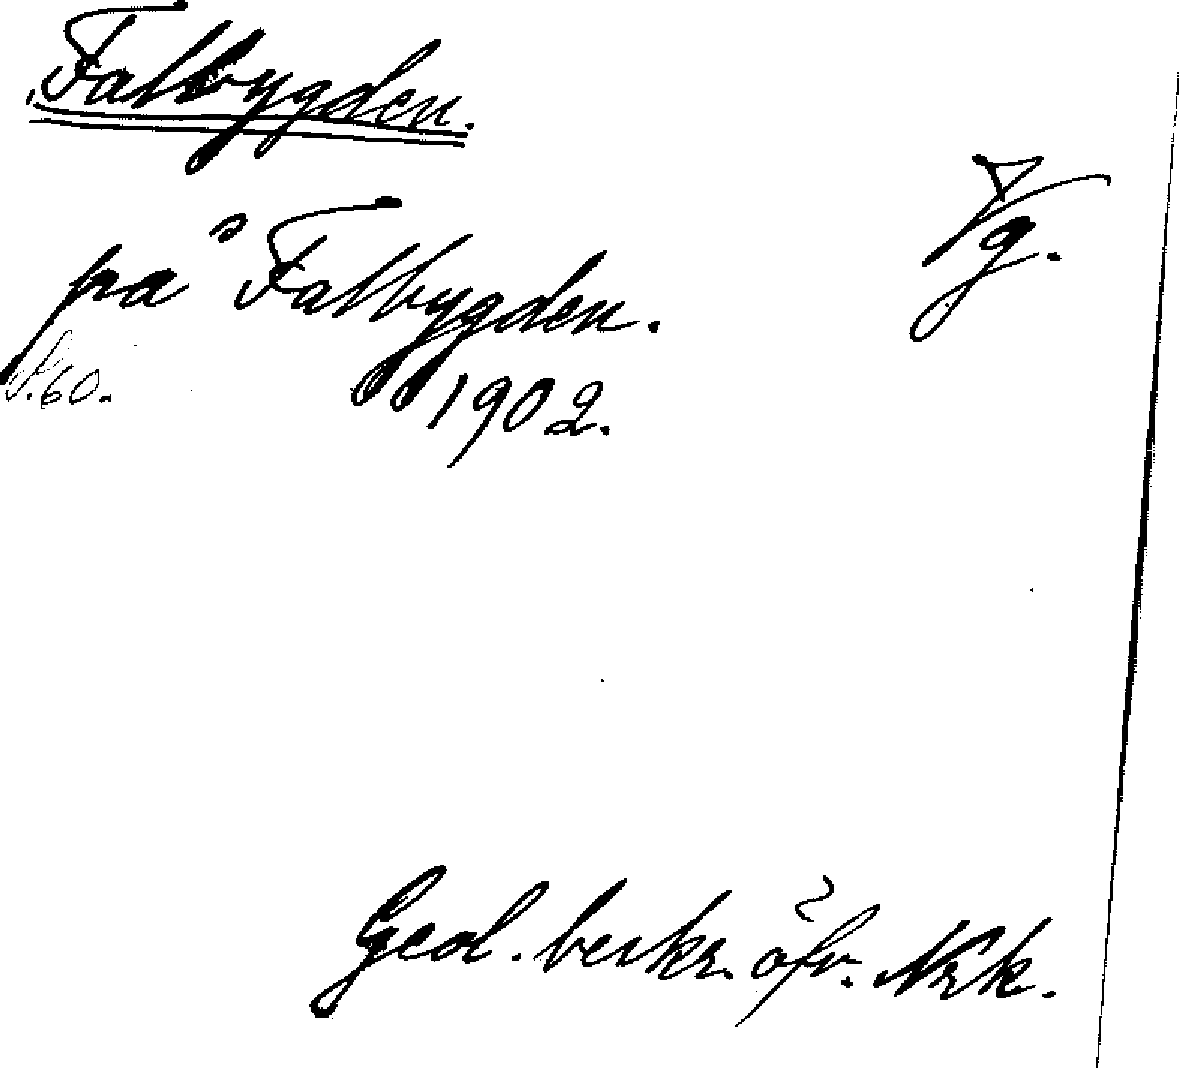 Falbygden.
Vg.
på Falbygden.
s. 60.
1902.
Geol. beskr. öfv. Nrk.